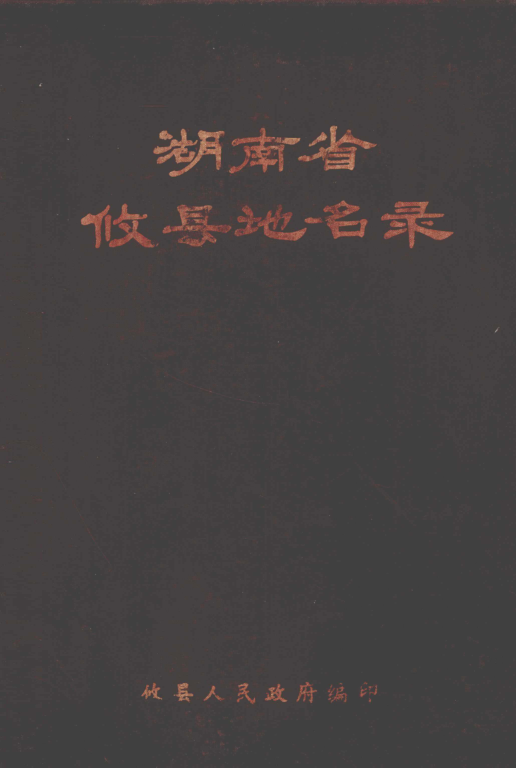 湖南省
攸县地名录
攸县人民政府编印